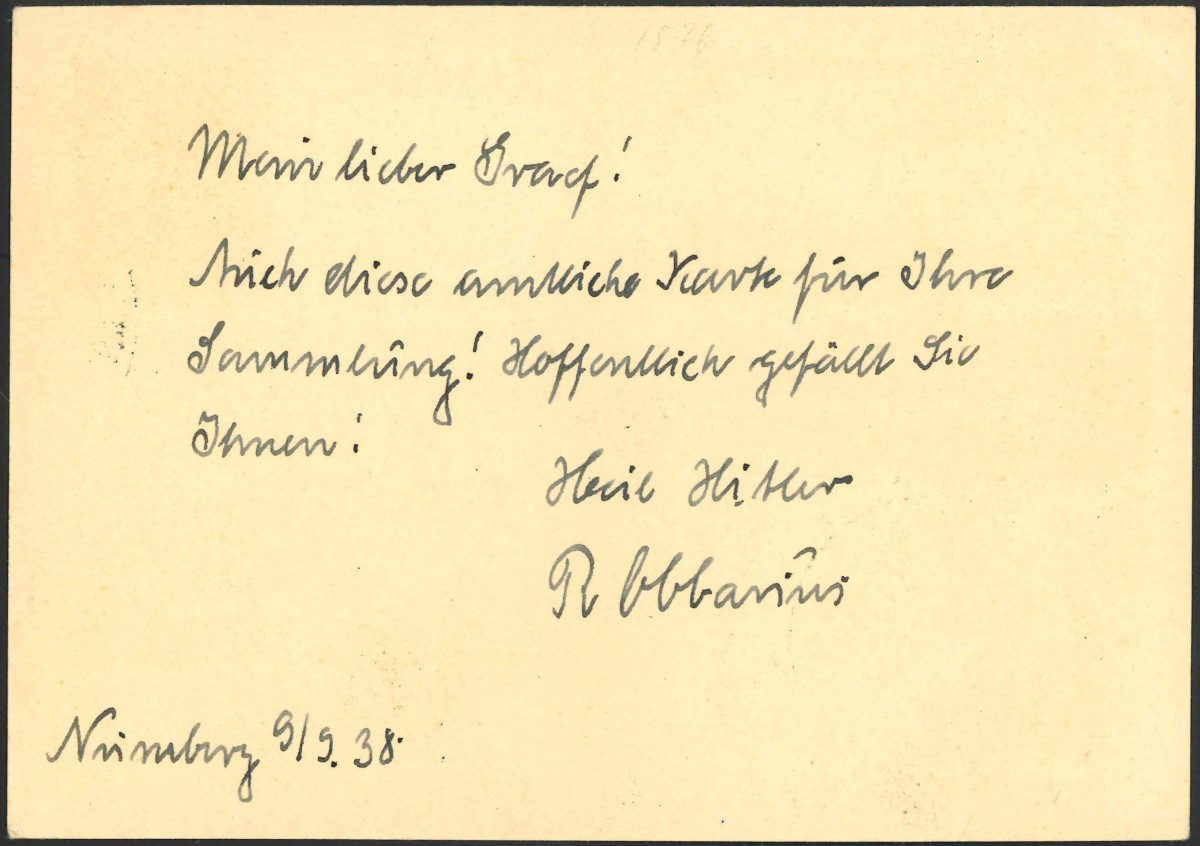 1576
Mein lieber Graef!
Auch diese amtliche Karte für Ihre
Sammlung! Hoffentlich gefällt Sie
Ihnen!
Heil Hitler
R Obbarius
Nürnberg 9/9. 38.